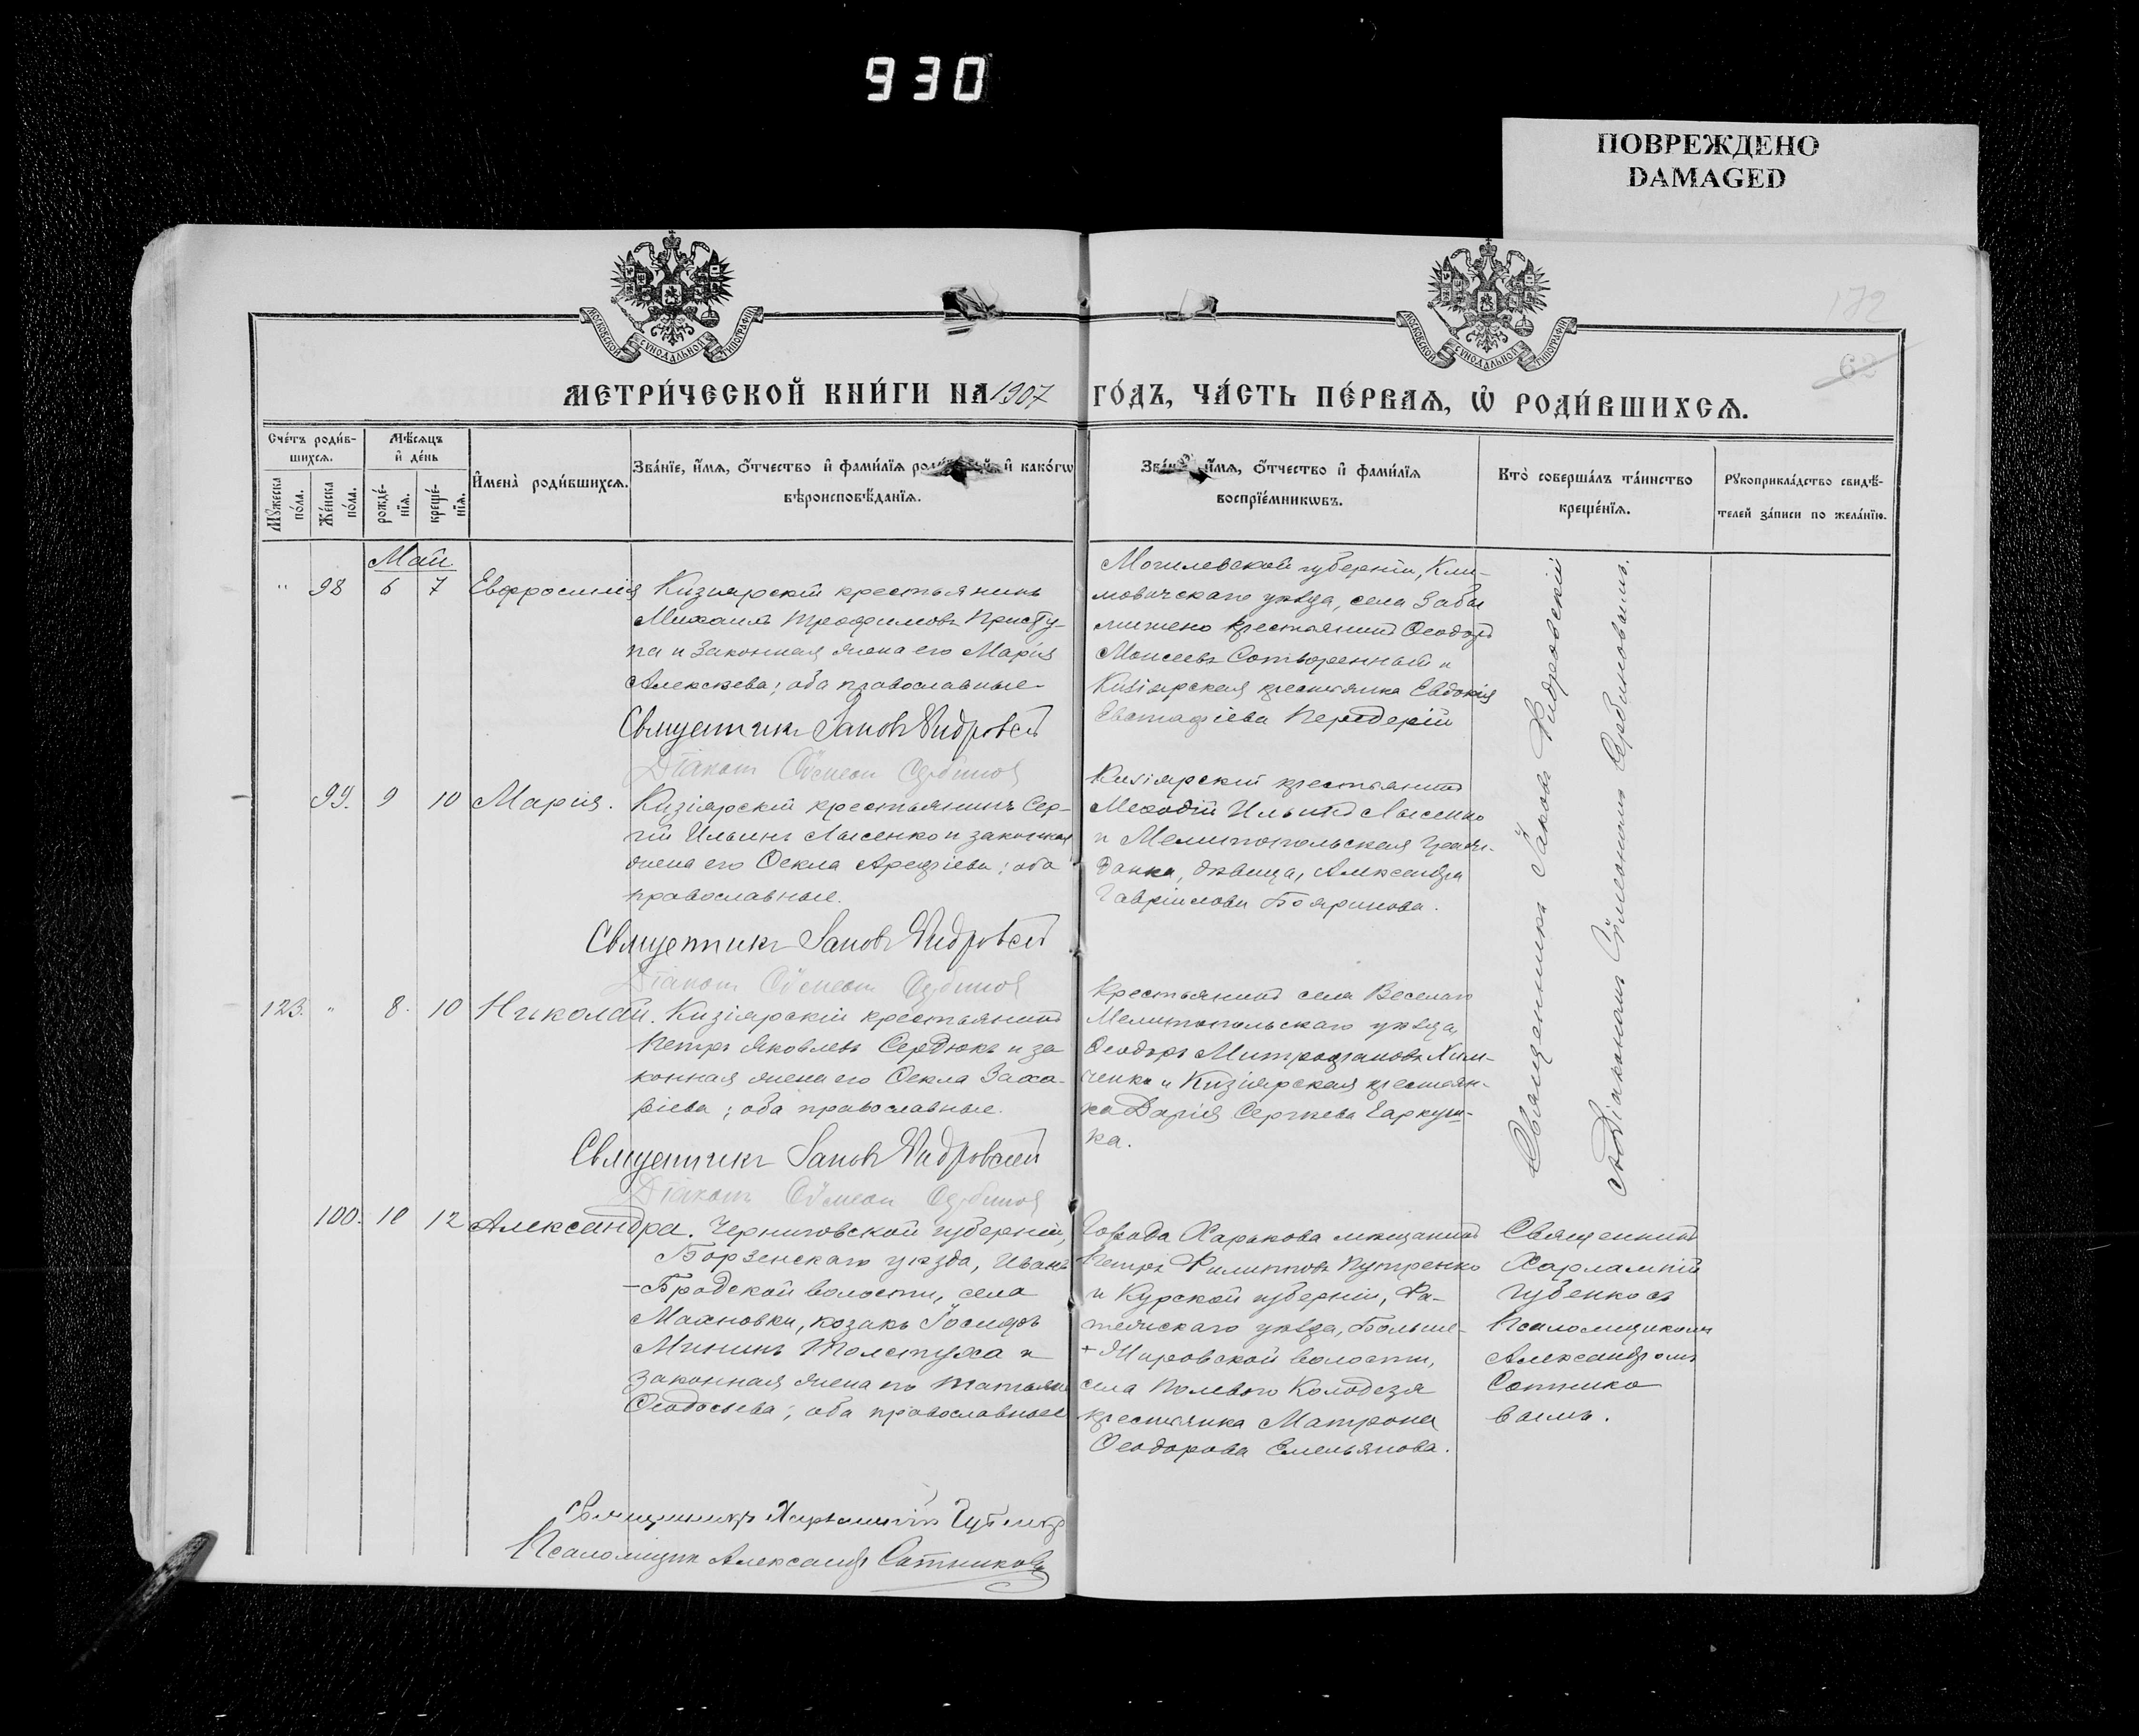 930
ПОВРЕЖДЕНО
DAMAGED
МОСКОВСКОЙ СѴНОДАЛЬНОЙ ТИПОГРАФІИ
МОСКОВСКОЙ СѴНОДАЛЬНОЙ ТИПОГРАФІИ
172
62
МЕТРИ́ЧЕСКОЙ КНИ́ГИ НА 1907 ГО́ДЪ, ЧА́СТЬ ПЕ́РВАѦ, Ѡ҆ РОДИ́ВШИХСѦ.
Сче́тъ роди́в-
шихсѧ.
Мꙋ́жеска по́ла.
Же́нска по́ла.
Мѣ́сѧцъ
и҆ де́нь
рожде́-
нїѧ.
креще́-
нїѧ.
И҆мена̀ роди́вшихсѧ.
Зва́нїе, и҆́мѧ, ѻ҆́тчество и҆ фами́лїѧ и҆ како́гѡ
вѣроисповѣ́данїѧ.
и҆́мѧ, ѻ҆́тчество и҆ фами́лїѧ
воспрїе́мникѡвъ.
Кто̀ соверша́лъ та́инство
креще́нїѧ.
Рꙋкоприкла́дство свидѣ́-
телей за́писи по жела́нїю.
Май
" 98 6 7 Евфросинія
Кизіярскій крестьянинъ
Михаилъ Трофимовъ Присту-
па и законная жена его Марія
Алексѣева; оба православные.
Священникъ Іаковъ
Діаконъ Сѵмеонъ Сербиновъ
Могилевской губерніи, Кли-
мовичскаго уѣзда, села
крестьянинъ Ѳеодоръ
Моисеевъ Сотворенный и
Кизіярская крестьянка Евдокія
Евстафіева Передерій
Священникъ Іаковъ
съ Діакономъ Сѵмеономъ Сербиновымъ.
99. 9 10 Марія.
Кизіярскій крестьянинъ Сер-
гій Ильинъ Лысенко и законная
жена его Ѳекла Арефіева; оба
православные.
Священникъ Іаковъ
Діаконъ Сѵмеонъ Сербиновъ
Кизіярскій крестьянинъ
Меѳодій Ильинъ Лысенко
и Мелитопольская граж-
данка, дѣвица, Александра
Гавріилова Бояринова.
123. " 8. 10 Николай.
Кизіярскій крестьянинъ
Петръ Яковлевъ Сердюкъ и за-
конная жена его Ѳекла Заха-
ріева; оба православные.
Священникъ Іаковъ
Діаконъ Сѵмеонъ Сербиновъ
Крестьянинъ села Веселаго
Мелитопольскаго уѣзда
Ѳеодоръ Митрофановъ Хим-
ченко и Кизіярская крестьян-
ка Дарія Сергѣева Гаркуш-
ка.
100. 10 12 Александра.
Черниговской губерніи,
Борзенскаго уѣзда, Иванъ
-Градской волости, села
Махновки, козакъ Іосифъ
Мининъ Толстуха и
законная жена его Татьяна
Ѳеодосьева; оба православные
Города Харькова мѣщанинъ
Петръ Филипповъ Путренко
и Курской губерніи, Фа-
тежскаго уѣзда, Больше-
Жировской волости,
села Полевого Колодезя
крестьянка Матрона
Ѳеодорова Емельянова.
Священникъ
Харлампій
Губенко съ
Псаломщикомъ
Александромъ
Сотнико
вымъ.
Священникъ Харлампій Губенко
Псаломщикъ Александръ Сотниковъ